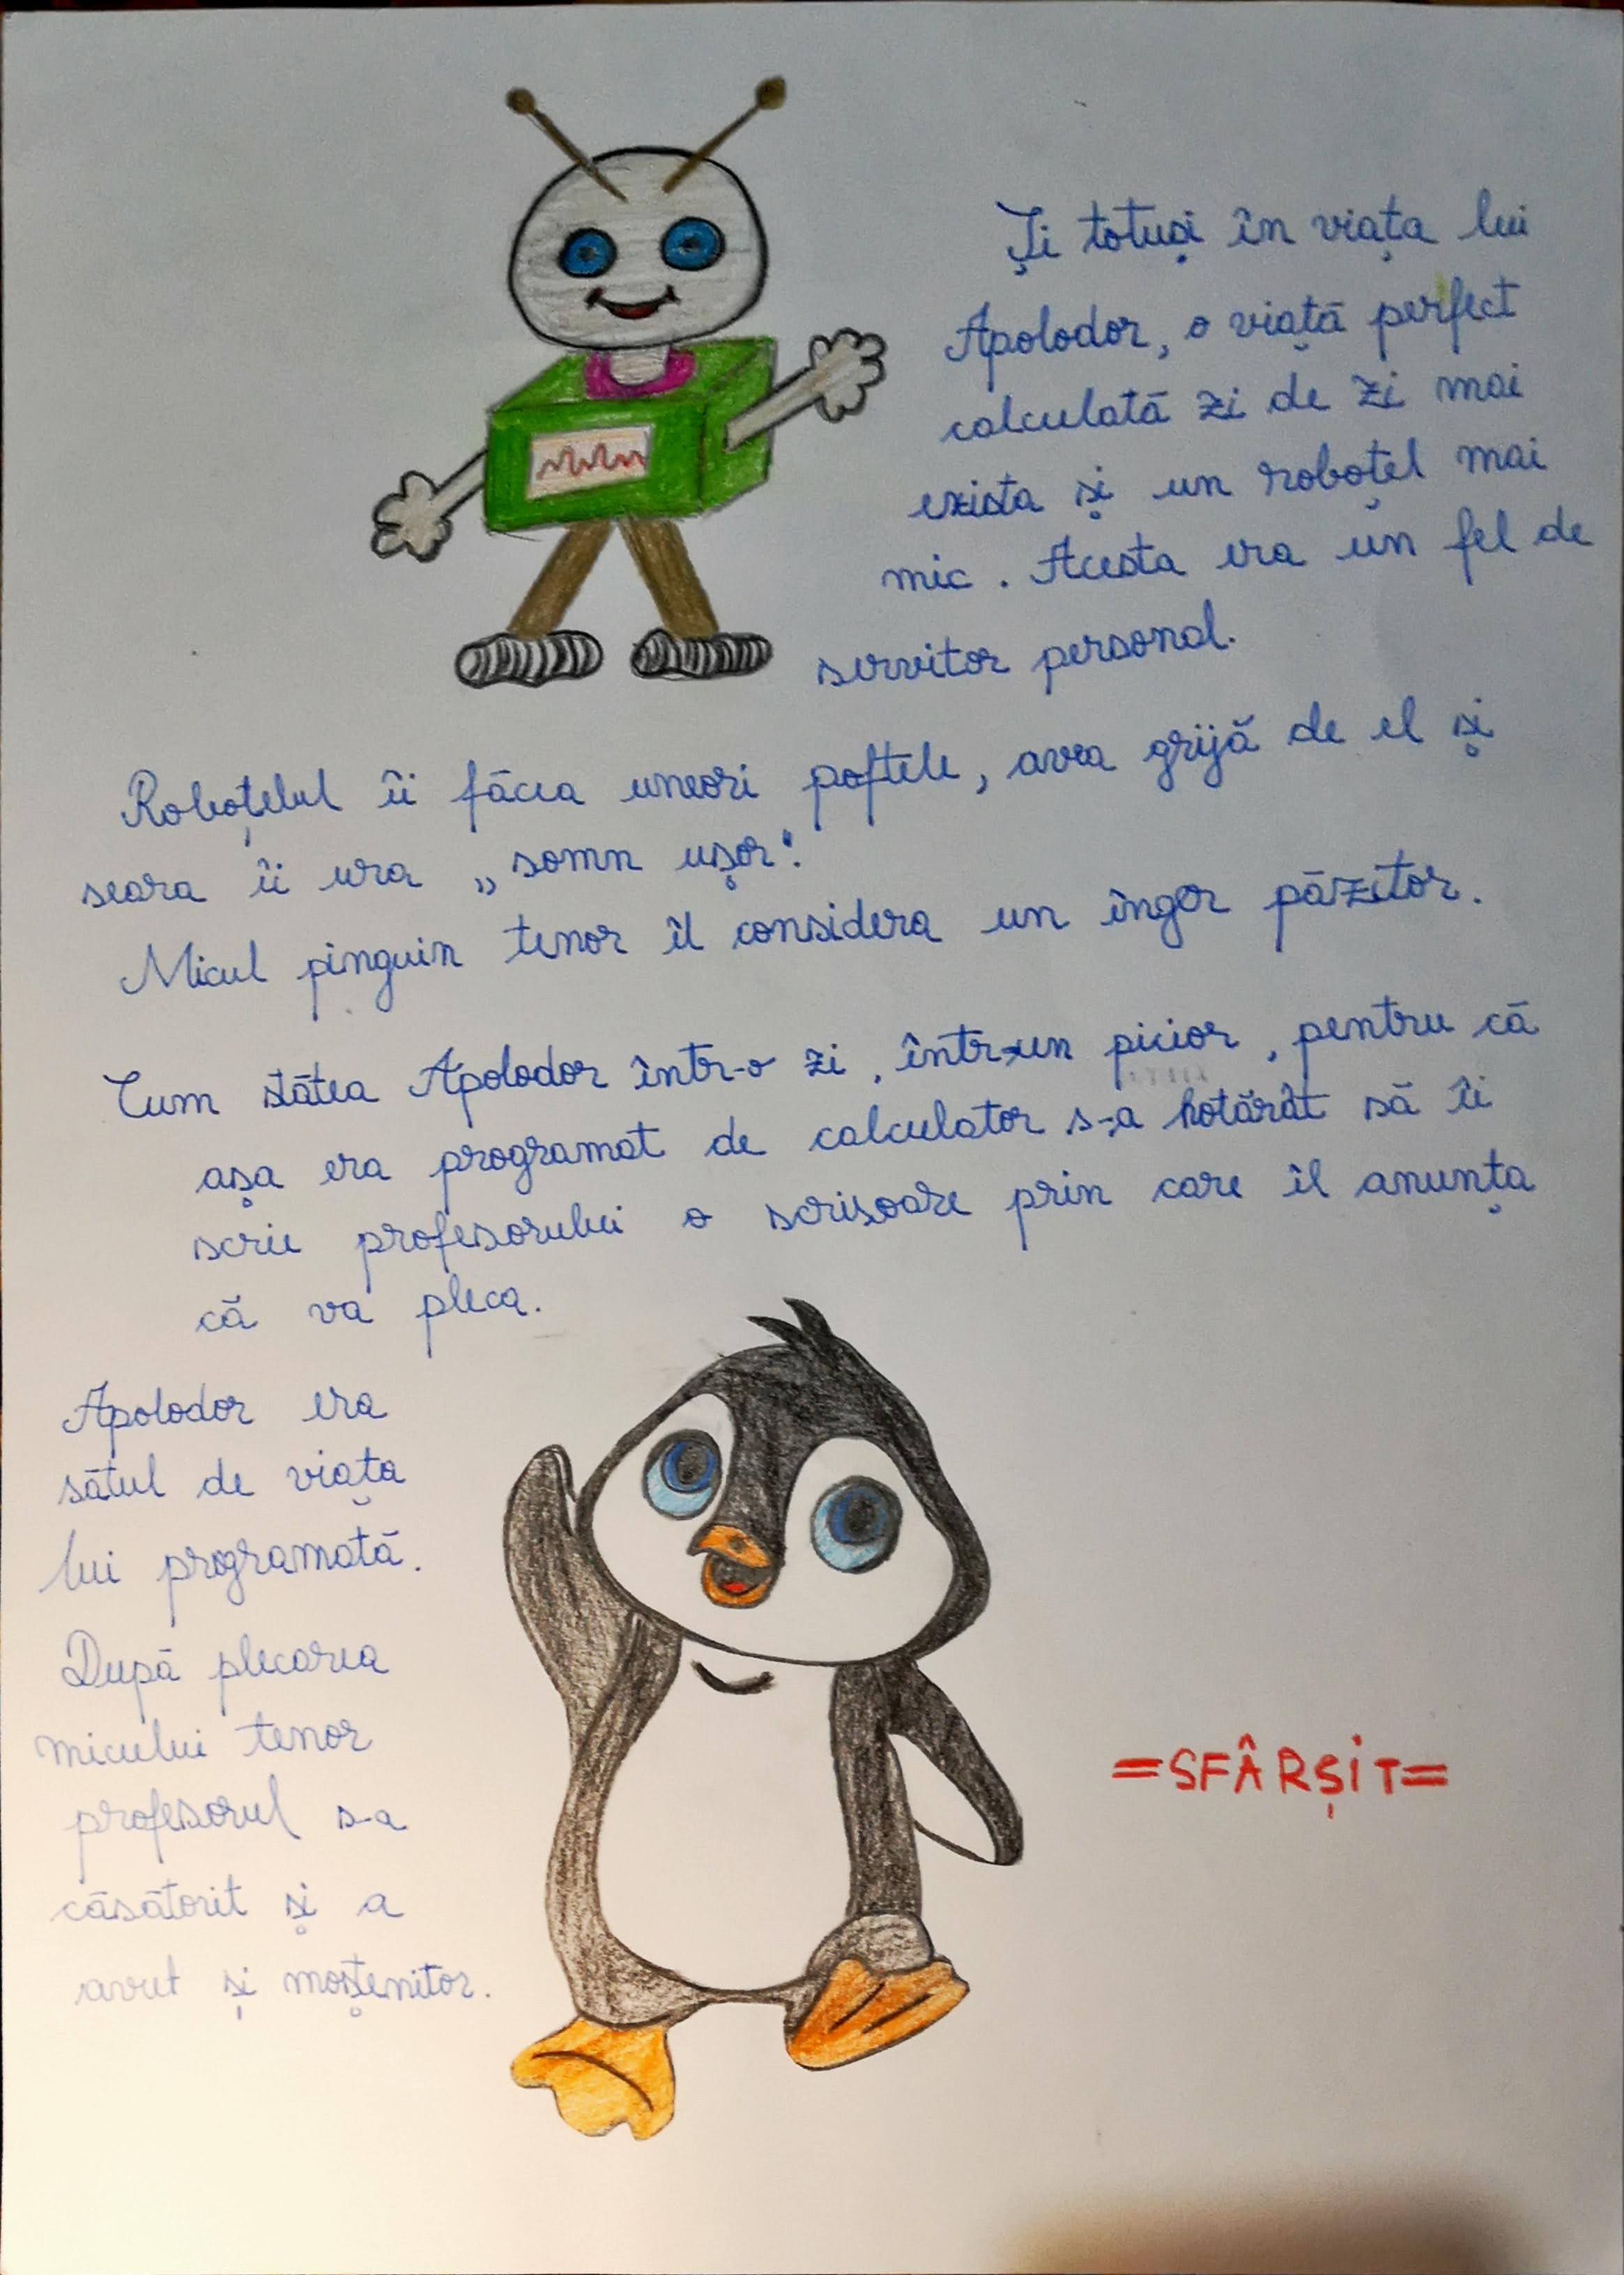 Și totuși în viața lui
Apolodor, o viață perfect
calculată zi de zi mai
exista și un roboțel mai
mic. Acesta era un fel de
servitor personal.
Roboțelul îi făcea uneori poftele, avea grijă de el și
seara îi ura „somn ușor".
Micul pinguin tenor îl considera un înger păzitor.
Cum stătea Apolodor într-o zi, într-un picior, pentru că
așa era programat de calculator s-a hotărât să îi
scrie profesorului o scrisoare prin care îl anunța
că va pleca.
Apolodor era
sătul de viața
lui programată.
După plecarea
micului tenor
profesorul s-a
căsătorit și a
avut și moștenitor.
=SFÂRȘIT=